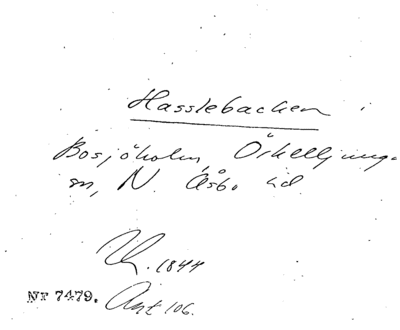 Hasslebacken i
Bosjöholm, Örkelljunga
sn, N. Åsbo hd
1844
Nr 7479. Ant 106.